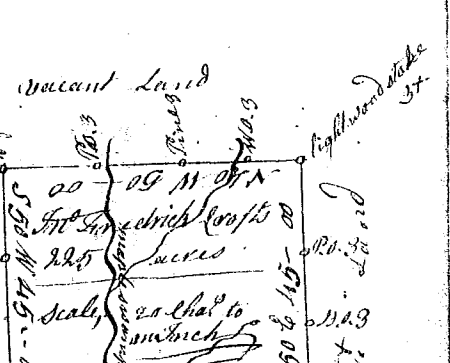 vacant Land
lightwood stake
3x
P.o.3
Pine 3
W.o.3
N 40 W 60 — 00
Jno. Fredrich Crofts
225 acres
Scale, 20 Chas. to
an Inch
S 50 W 45 —
50 E 45 — 00
P.o.3
W.o.3
Land